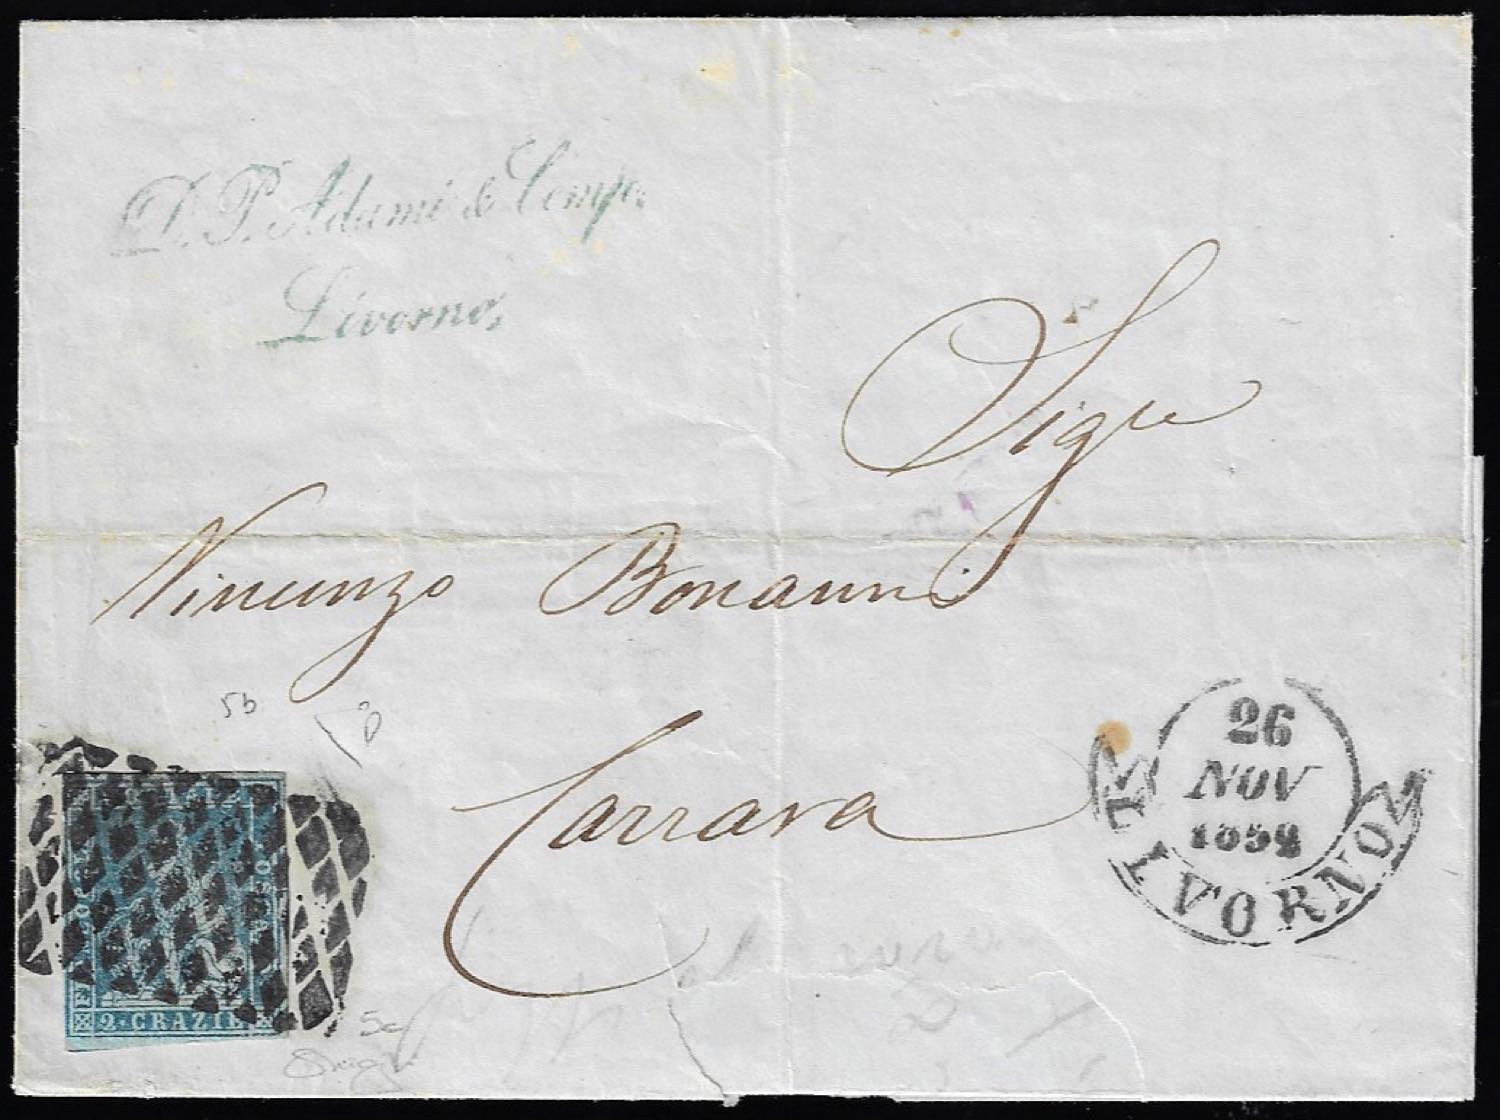 D. P. Adami & Comp.
Livorno,
Sigre
Vincenzo Bonanni
Carrara
5b
26
NOV
1852
LIVORNO
FRANCOBOLLO
2·CRAZIE
5c